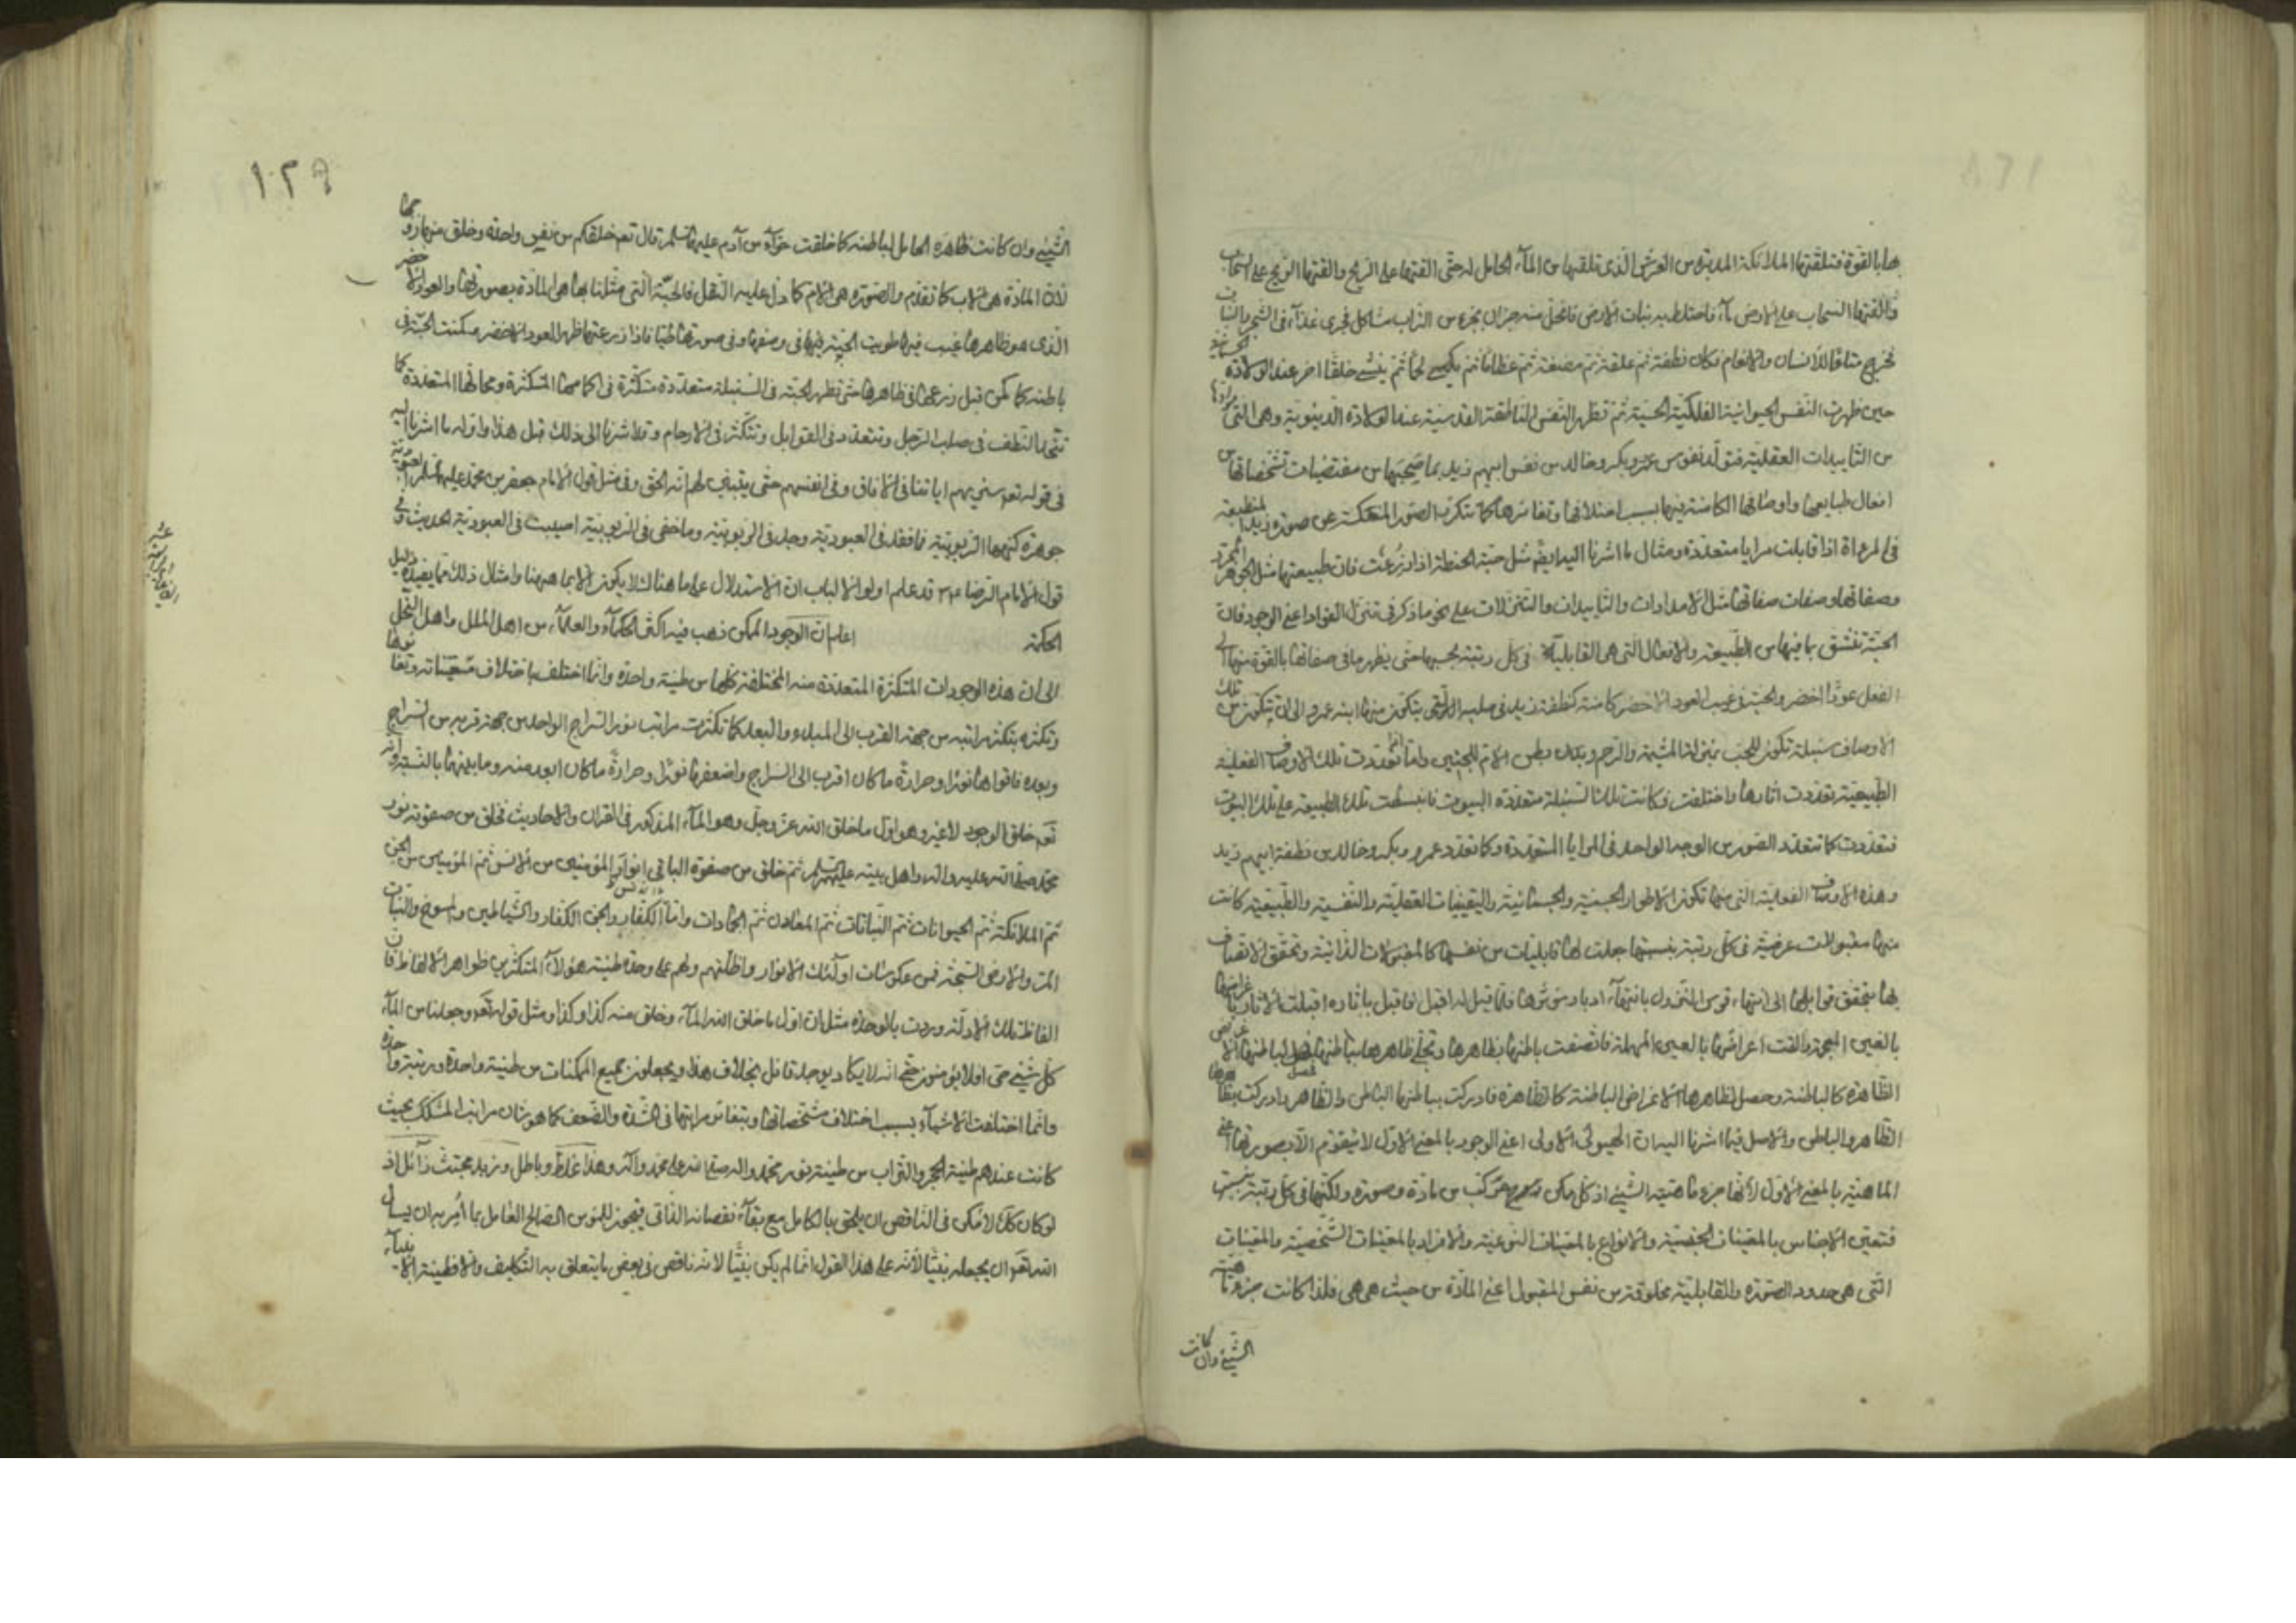 هما بالقوة فتلقتها الملائكة المدبرة من العرش الذى تلقيها من الماء الحامل له حتى القتها على الريح والقتها الريح على السحاب
والقتها السحاب على الارض ماء فاختلط به نبات الارض فانحل منه جزان بجزء من التراب مشاكل فجرى غذاء فى الشجر والنبات
فخرج متاعا للانسان والانعام فكان نطفة ثم علقة ثم مضغة ثم عظاما ثم يكسى لحما ثم ينشئ خلقا اخر عند الولادة الجسمانية
حين ظهرت النفس الحيوانية الفلكية الحسية ثم تظهر النفس الناطقة القدسية عند الولادة الدنيوية وهى التى
من التاييدات العقلية فتولد نفوس عمرو وبكر وخالد من نفس ابيهم زيد بما صحبها من مقتضيات تشخصاتها من
افعال طبايعها واوضاعها الكامنة فيها بسبب اختلافها وتغايرها كما تتكثر الصور المنعكسة عن صورة زيد المنطبعة
فى المرءاة اذا قابلت مرايا متعددة ومثال ما اشرنا اليه ايضا مثل حبة الحنطة اذا زرعت فان طبيعتها مثل الجوهر المجرد
وصفاتها وصفات صفاتها مثل الامدادات والتاييدات والتنزلات على نحو ما ذكر فى تنزل الفؤاد اعنى الوجود فان
الحبة تنشق بما فيها من الطبيعة والافعال التى هى القابلية فى كل رتبة بحسبها حتى يظهر ما فى صفاتها بالقوة منها الى
الفعل عودا اخضر والحبة فى غيب العود الاخضر كامنة كنطفة زيد فى صلبه التى يتكون منها ابنه عمرو الى ان يتكون من تلك
الاوصاف سنبلة تكون للحب بمنزلة المشيمة والرحم وبدن بطن الام للجنين ولما تعددت تلك الاوصاف الفعلية
الطبيعية تعددت اثارها واختلفت فكانت تلك السنبلة متعددة البيوت فانبسطت تلك الطبيعة على تلك البيوت
فتعددت كما تتعدد الصور من الوجه الواحد فى المرايا المتعددة وكما تعدد عمرو وبكر وخالد من نطفة ابيهم زيد
وهذه الاوصاف الفعلية التى منها تكون الاطوار الجسمية والجسمانية والتعينات العقلية والنفسية والطبيعية كانت
منها مقبولات عرضية فى كل رتبة بنسبتها جعلت لها قابليات من نفسها كالمقبولات الذاتية وتحقق الاتصاف
بها بتحقق قوابلها الى انتهاء قوس النزول بانتهاء ادبار منشئها فلما قيل له اقبل فاقبل باثاره اقبلت الاثار باغراضها
بالغين المعجمة والقت اعراضها بالعين المهملة فاتصفت باطنها بظاهرها وتجلى ظاهرها بباطنها فحصل لباطنها الاعراض
الظاهرة كالباطنة وحصل لظاهرها الاغراض الباطنة كالظاهرة فادركت بباطنها الباطن والظاهر وادركت بظاهرها
الظاهر والباطن والاصل فيما اشرنا اليه ان الهيولى الاولى اعنى الوجود بالمعنى الاول لا يتقوم الا بصورتها اعنى
الماهية بالمعنى الاول لانها جزء ماهية الشئ اذ كل ممكن مركب من مادة وصورة ولكنها فى كل رتبة بنسبتها
فتعين الاجناس بالمعينات الجنسية والانواع بالمعينات النوعية والافراد بالمعينات الشخصية والمعينات
التى هى حدود الصورة والقابلية مخلوقة من نفس المقبول اعنى المادة من حيث هى هى فلذا كانت جزء ماهية
الشئ وان كانت
١٢٩
الشئ وان كانت ظاهره الحامل لباطنه كما خلقت حواء من آدم عليهما السلم قال تعم خلقكم من نفس واحدة وخلق منها زوجها
لان المادة هى الاب كما تقدم والصورة هى الام كما دل عليه النقل فالحبة التى مثلنا بها هى المادة بصورتها والعود الاخضر
الذى هو ظاهرها غيب فيها طويت الحبة فيها فى وصفها وفى صورتها طيا فاذا زرعتها ظهر العود الاخضر فسكنت الحبة فى
باطنه كما كمن قبل زرعها فى ظاهرها حتى تظهر الحبة فى السنبلة متعددة متكثرة فى اكمامها المتكثرة ومحالها المتعددة كما
تتحد النطف فى صلب الرجل وتتعدد فى القوابل وتتكثر فى الارحام وقد اشرنا الى ذلك قبل هذا واقوله ما اشرنا اليه
فى قوله تعم سنريهم اياتنا فى الافاق وفى انفسهم حتى يتبين لهم انه الحق وفى مثل قول الامام جعفر بن محمد عليهما السلم العبودية
جوهرة كنهها الربوبية فما فقد فى العبودية وجد فى الربوبية وما خفى فى الربوبية اصيب فى العبودية الحديث وفى
قول الامام الرضا ع قد علم اولوا الالباب ان الاستدلال على ما هنالك لا يكون الا بما هيهنا وامثال ذلك مما يفيده دليل
الحكمة اعلم ان الوجود الممكن ذهب فيه اكثر الحكماء والعلماء من اهل الملل واهل النحل
الى ان هذه الوجودات المتكثرة المتعددة منه المختلفة كلها من طينة واحدة وانما اختلف باختلاف مشخصاته وتغايرها
وتكثره بتكثر مراتبه من جهة القرب الى المبدء والبعد كما تكثرت مراتب نور السراج الواحد من جهة قربه من السراج
وبعده فاقواها نورا وحرارة ما كان اقرب الى السراج واضعفها نورا وحرارة ما كان ابعد منه وما بينهما بالنسبة وانه
تعم خلق الوجود لا غير وهو اول ما خلق الله عز وجل وهو الماء المذكور فى القران والاحاديث فخلق من صفوته نور
محمد صلى الله عليه واله واهل بيته عليهم السلم ثم خلق من صفوة الباقى انوار المؤمنين من الانس ثم المؤمنين من الجن
ثم الملائكة ثم الحيوانات ثم النباتات ثم المعادن ثم الجمادات واما الكفار والجن الكفار والشياطين والمسوخ والنبات
المر والارض السبخة فمن عكوسات اولئك الانوار واظلتهم ولهم على وحدة طينة هؤلاء المتكثرين ظواهر الالفاظ فان
الفاظ تلك الادلة وردت بالوحدة مثل ان اول ما خلق الله الماء وخلق منه كذا وكذا ومثل قوله تعم وجعلنا من الماء
كل شئ حى افلا يؤمنون حتى انه لا يكاد يوجد قائل بخلاف هذا ويجعلون جميع الممكنات من طينة واحدة ورتبة واحدة
وانما اختلفت الاشياء بسبب اختلاف مشخصاتها وبتغاير مراتبها فى الشدة والضعف كما هو شان مراتب المشكك بحيث
كانت عندهم طينة الحجر والتراب من طينة نور محمد واله صلى الله على محمد وآله وهذا غلط وباطل وزبد مجتث زائل اذ
لو كان كك لامكن فى الناقص ان يلحق بالكامل مع بقاء نقصانه الذاتى فيجوز للمؤمن الصالح العامل بما أمر به ان يسال
الله تعم ان يجعله نبيا لانه على هذا القول انما لم يكن نبيا لانه ناقص فى بعض ما يتعلق به التكليف والا فطينة الانبياء